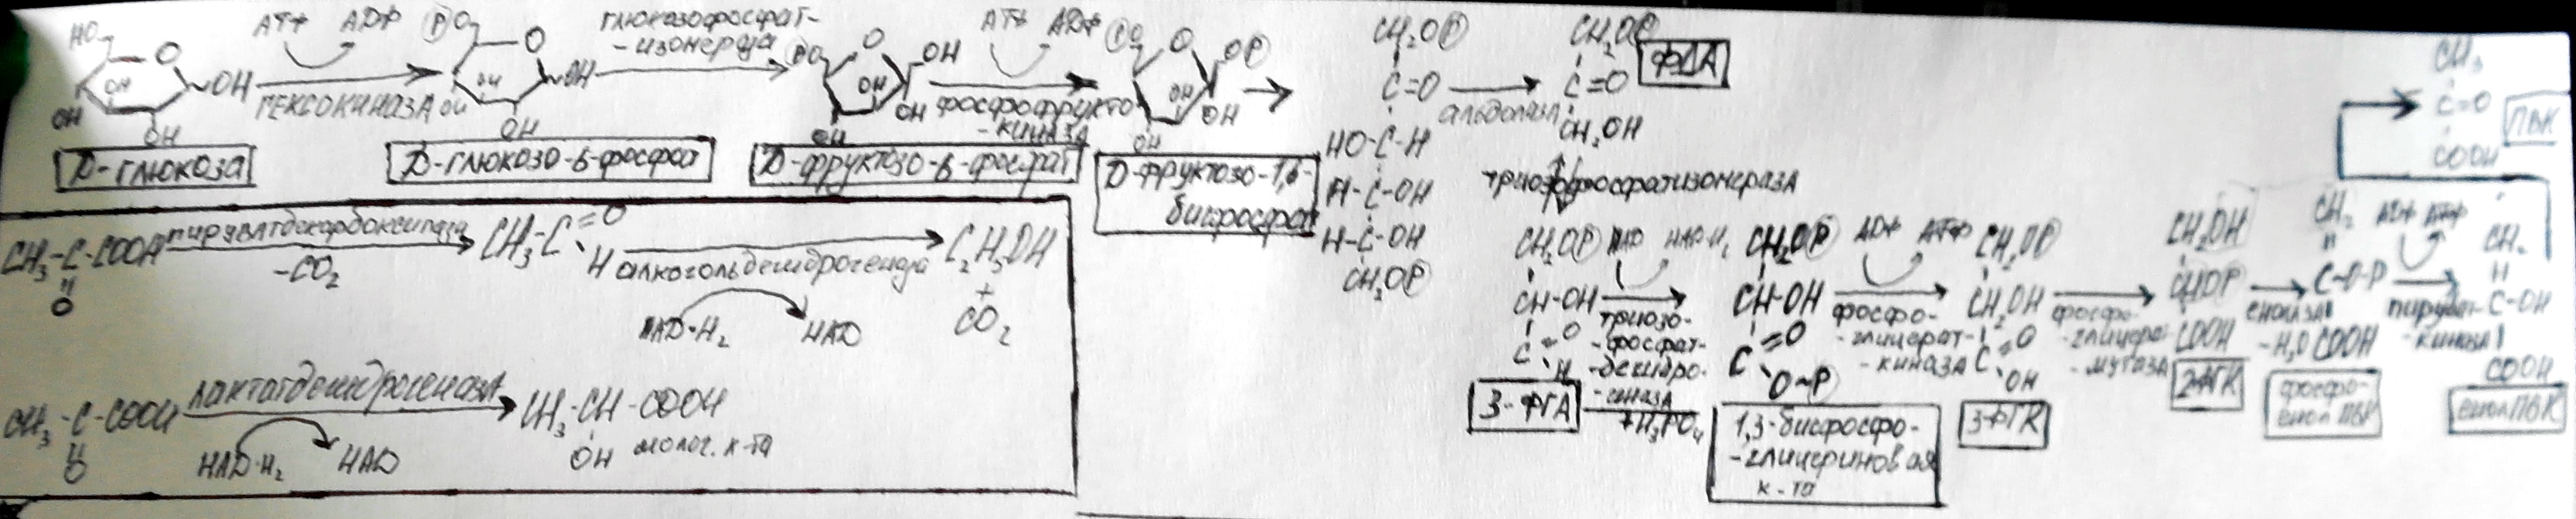 АТФ АДФ
ГЕКСОКИНАЗА
Д-глюкоза
глюкозофосфат-
-изомераза
Д-глюкозо-6-фосфоа
АТФ АДФ
фосфофрукто-
-киназа
Д-фруктозо-6-фосфат
Д-фруктозо-1,6-
бисфосфат
CH₂OP
C=O
HO-C-H
H-C-OH
H-C-OH
CH₂OP
альдолаза
CH₂OP
C=O
CH₂OH
ФДА
триозофосфатизомераза
CH₂OP
CH-OH
C=O
H
3-ФГА
НАД НАД·H₂
триозо-
-фосфат-
-дегидро-
-геназа
+H₃PO₄
CH₂OP
CH-OH
C=O
O~P
1,3-бисфосфо-
-глицериновая
к-та
АДФ АТФ
фосфо-
-глицерат-
-киназа
CH₂OP
CH₂OH
C=O
OH
3-ФГК
фосфо-
-глицеро-
-мутаза
CH₂OH
CHOP
COOH
2-ФГК
енолаза
-H₂O
CH₂
C-O-P
COOH
фосфо-
енол ПВК
АДФ АТФ
пируват-
-киназа
CH₂
C-OH
COOH
енолПВК
CH₃
C=O
COOH
ПВК
CH₃-C-COOH
O
пируватдекарбоксилаза
-CO₂
CH₃-C=O
H
алкогольдегидрогеназа
НАД·H₂ НАД
C₂H₅OH
+
CO₂
CH₃-C-COOH
O
лактатдегидрогеназа
НАД·H₂ НАД
CH₃-CH-COOH
OH молоч. к-та